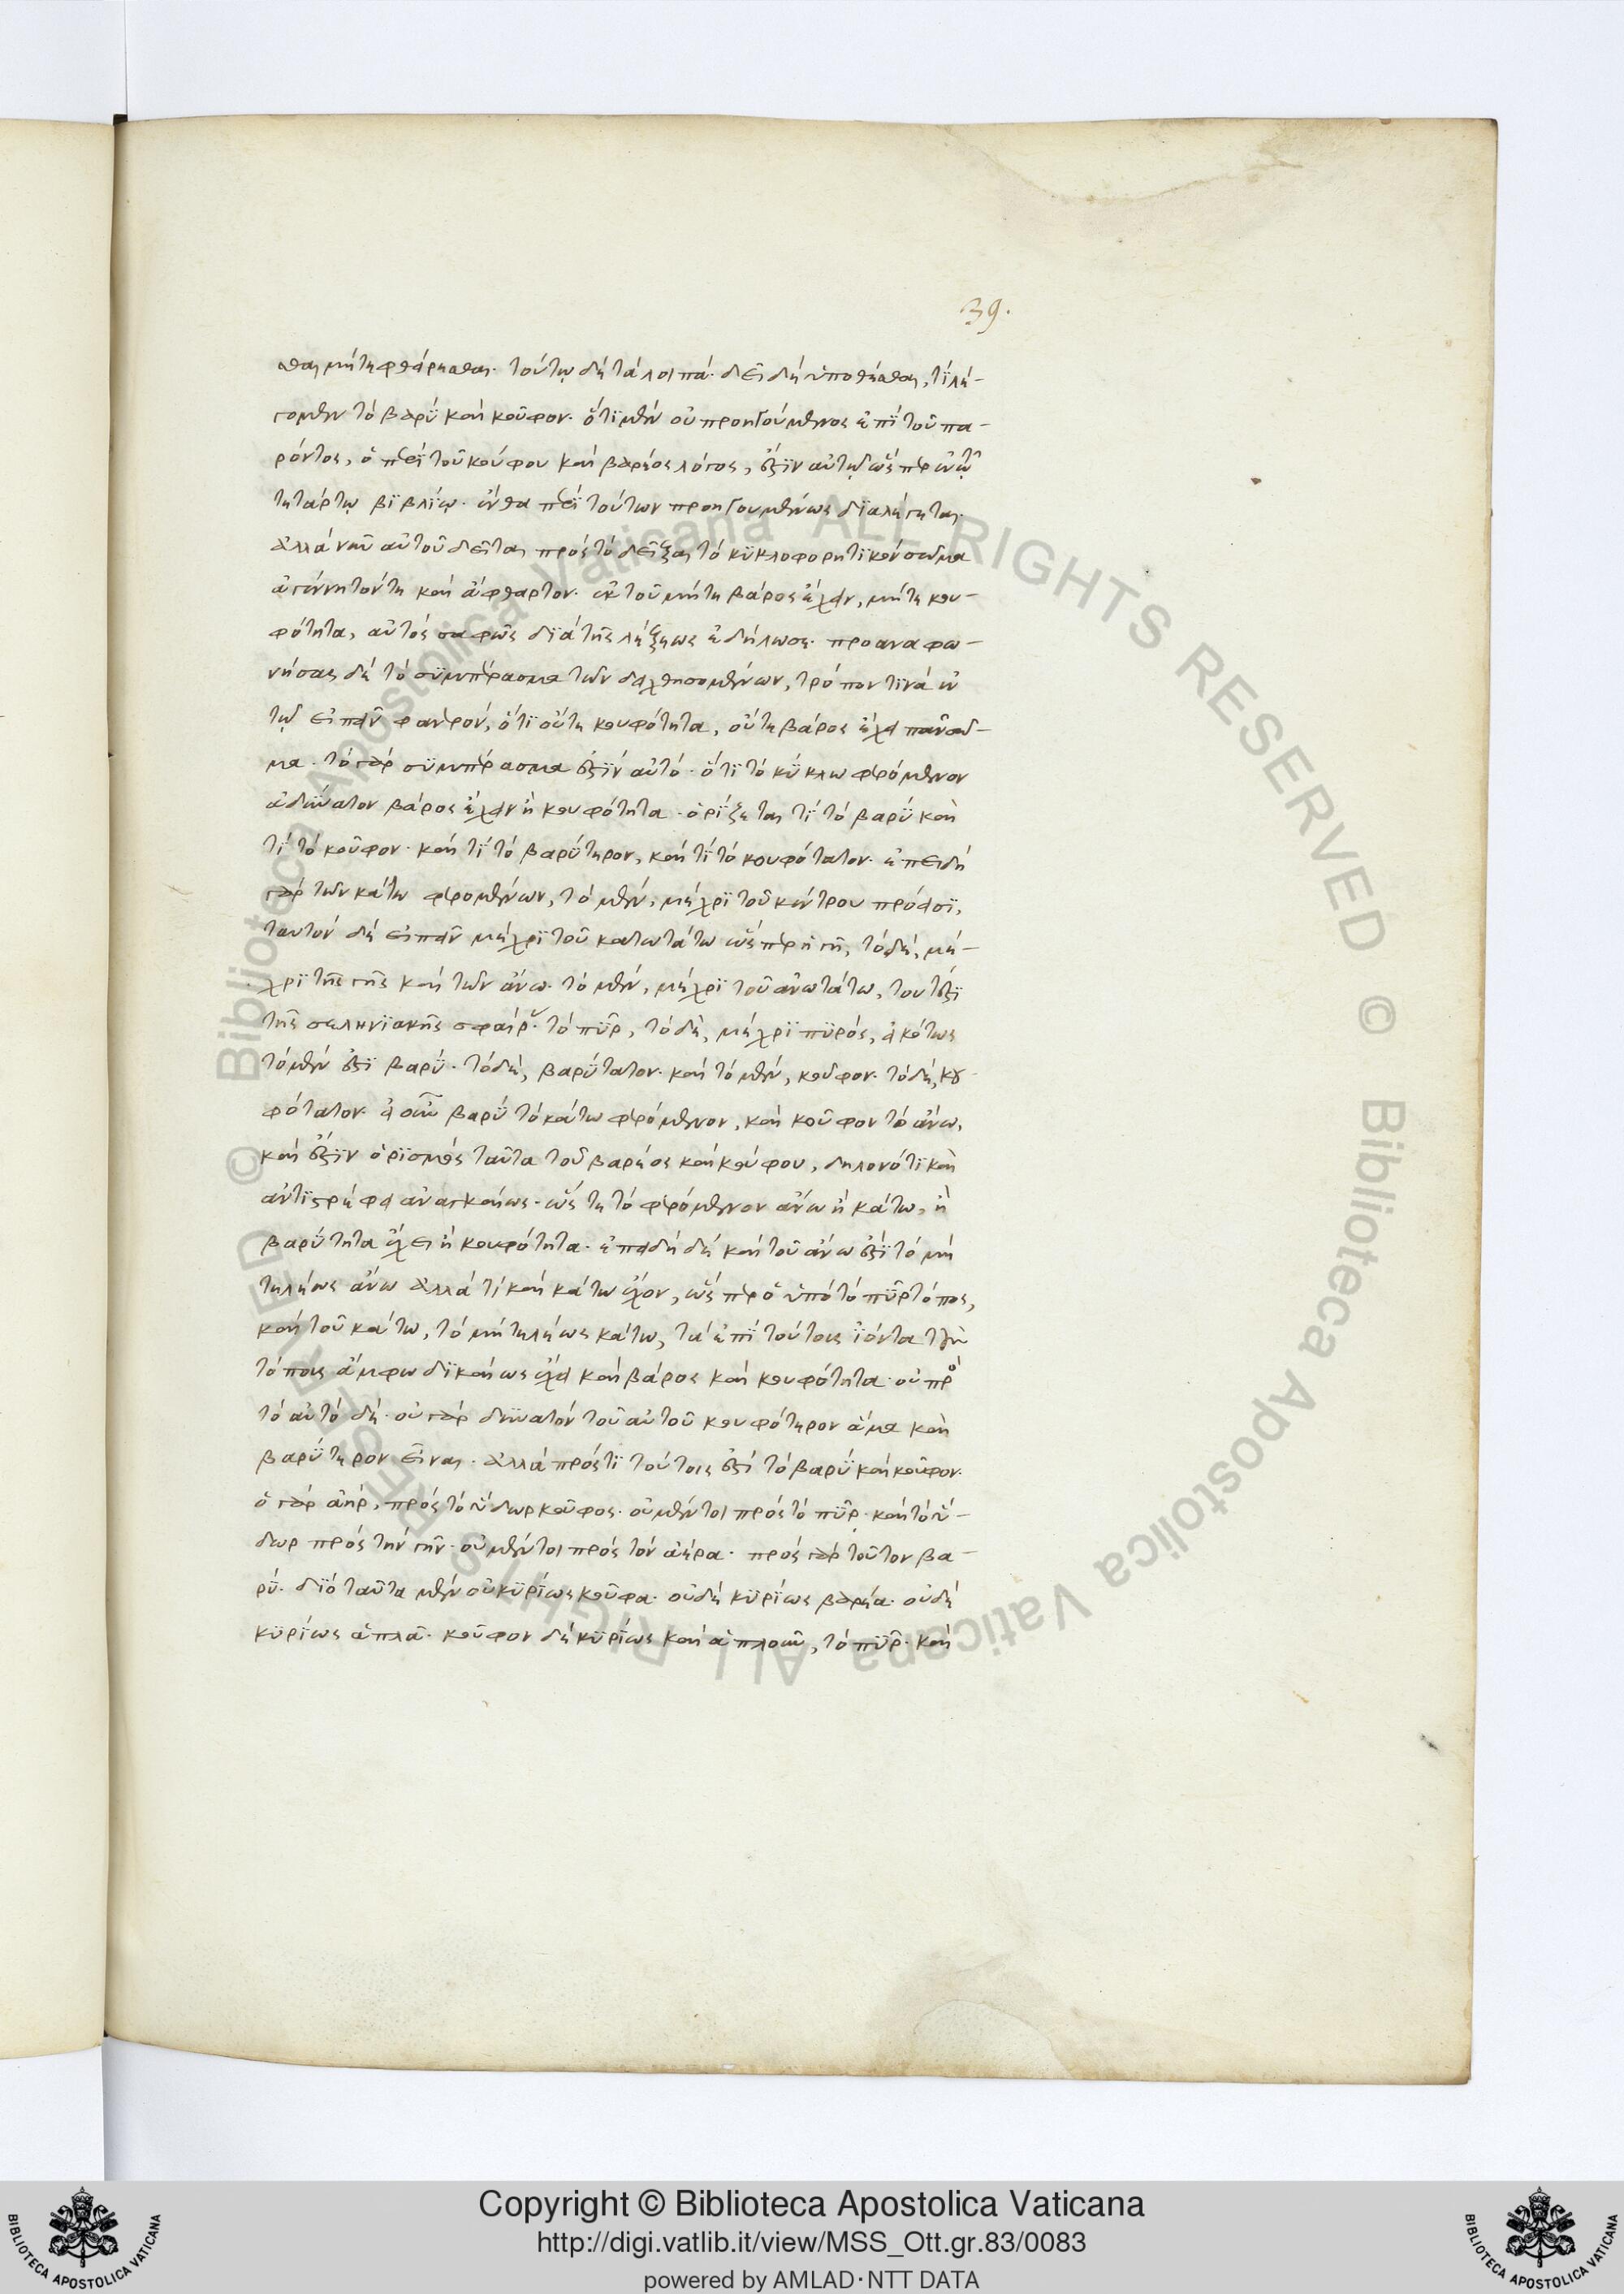 39.
σθαι μήτε φθείρεσθαι. τούτῳ δὲ τὰ λοιπά. δεῖ δὲ ὑποθέσθαι, τί λέ-
γομεν τὸ βαρὺ καὶ κοῦφον. ὅτι μὲν οὐ προηγούμενος ἐπὶ τοῦ πα-
ρόντος, ὁ περὶ τοῦ κούφου καὶ βαρέος λόγος, ἐστὶν αὐτῷ ὥσπερ ἐν τῷ
τετάρτῳ βιβλίῳ. ἔνθα περὶ τούτων προηγουμένως διαλέγεται.
ἀλλὰ νῦν αὐτοῦ δεῖται πρὸς τὸ δεῖξαι τὸ κυκλοφορητικὸν σῶμα
ἀγέννητόν τε καὶ ἄφθαρτον. ἐκ τοῦ μήτε βάρος ἔχειν, μήτε κου-
φότητα, αὐτὸς σαφῶς διὰ τῆς λέξεως ἐδήλωσε. προαναφω-
νήσας δὲ τὸ συμπέρασμα τῶν δειχθησομένων, τρόπον τινὰ ἐν
τῷ εἰπεῖν φανερόν, ὅτι οὔτε κουφότητα, οὔτε βάρος ἔχει πᾶν σῶ-
μα. τὸ γὰρ συμπέρασμα ἐστὶν αὐτό. ὅτι τὸ κύκλω φερόμενον
ἀδύνατον βάρος ἔχειν ἢ κουφότητα. ὁρίζεται τί τὸ βαρὺ καὶ
τί τὸ κοῦφον. καὶ τί τὸ βαρύτερον, καὶ τί τὸ κουφότατον. ἐπειδὴ
γὰρ τῶν κάτω φερομένων, τὸ μὲν, μέχρι τοῦ κέντρου πρόεισι,
ταυτὸν δὲ εἰπεῖν μέχρι τοῦ κατωτάτω ὥσπερ ἡ γῆ, τὸ δὲ, μέ-
χρι τῆς γῆς καὶ τῶν ἄνω. τὸ μὲν, μέχρι τοῦ ἀνωτάτω, τουτέστι
τῆς σεληνιακῆς σφαίρας. τὸ πῦρ, τὸ δὲ, μέχρι πυρός, εἰκότως
τὸ μὲν ἐστὶ βαρύ. τὸ δὲ, βαρύτατον. καὶ τὸ μὲν, κοῦφον. τὸ δὲ, κου
φότατον. εἰ οὖν βαρὺ τὸ κάτω φερόμενον, καὶ κοῦφον τὸ ἄνω,
καὶ ἔστιν ὁρισμὸς ταῦτα τοῦ βαρέος καὶ κούφου, δηλονότι καὶ
ἀντιστρέφει ἀναγκαίως. ὥστε τὸ φερόμενον ἄνω ἢ κάτω, ἢ
βαρύτητα ἔχει ἢ κουφότητα. ἐπειδὴ δὲ καὶ τοῦ ἄνω ἐστὶ τὸ μὴ
τελέως ἄνω ἀλλά τι καὶ κάτω ἔχον, ὥσπερ ὁ ὑπὸ τὸ πῦρ τόπος,
καὶ τοῦ κάτω, τὸ μὴ τελέως κάτω, τὰ ἐπὶ τούτους ἰόντα τοὺς
τόπους ἄμφω δικαίως ἔχει καὶ βάρος καὶ κουφότητα. οὐ πρὸς
τὸ αὐτὸ δέ. οὐ γὰρ δυνατὸν τοῦ αὐτοῦ κουφότερον ἅμα καὶ
βαρύτερον εἶναι. ἀλλὰ πρός τι τούτοις ἐστὶ τὸ βαρὺ καὶ κοῦφον.
ὁ γὰρ ἀὴρ, πρὸς τὸ ὕδωρ κοῦφος. οὐ μέντοι πρὸς τὸ πῦρ. καὶ τὸ ὕ-
δωρ πρὸς τὴν γῆν. οὐ μέντοι πρὸς τὸν ἀέρα. πρὸς γὰρ τοῦτον βα-
ρύ. διὸ ταῦτα μὲν οὐ κυρίως κοῦφα. οὐδὲ κυρίως βαρέα. οὐδὲ
κυρίως ἁπλᾶ. κοῦφον δὲ κυρίως καὶ ἁπλοῦν, τὸ πῦρ. καὶ
© Biblioteca Apostolica Vaticana ALL RIGHTS RESERVED © Biblioteca Apostolica Vaticana ALL RIGHTS RESERVED
Copyright © Biblioteca Apostolica Vaticana
http://digi.vatlib.it/view/MSS_Ott.gr.83/0083
powered by AMLAD·NTT DATA
BIBLIOTECA APOSTOLICA VATICANA
BIBLIOTECA APOSTOLICA VATICANA